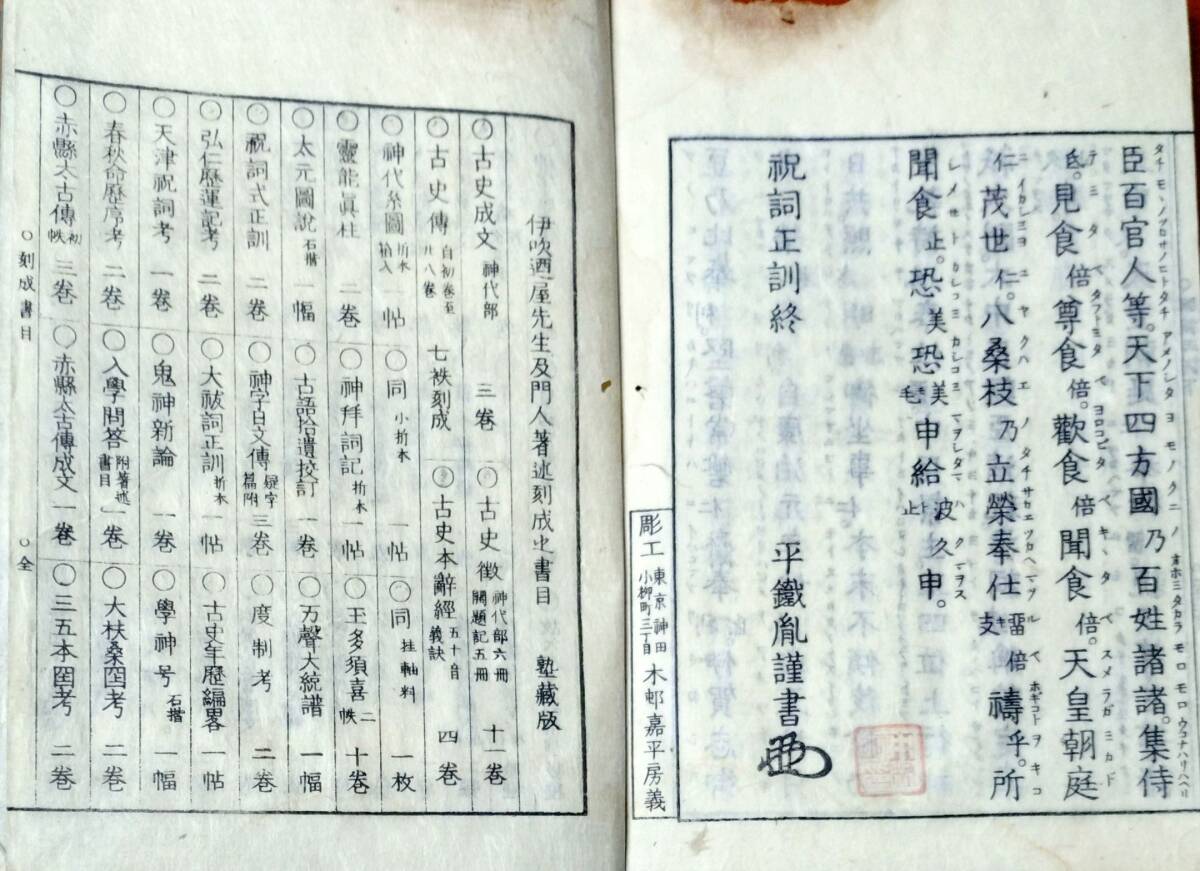 臣百官人等。天下四方國乃百姓諸諸。集侍
氐。見食倍尊食倍。歡食倍聞食倍。天皇朝庭
仁茂世仁。八桑枝乃立榮奉仕支留倍禱乎。所
聞食止。恐美恐美毛申給止波久申。
祝詞正訓終
平鐵胤謹書
彫工 東京神田小柳町三丁目 木邨嘉平房義
伊吹迺屋先生及門人著述刻成之書目 塾藏版
○古史成文 神代部 三卷 ○古史徵 神代部六冊開題記五冊 十一卷
○古史傳 自初卷至廿八卷 七袟刻成 ○古史本辭經 五十音義訣 四卷
○神代系圖 折本箱入 一帖 ○同 小折本 一帖 ○同 挂軸料 一枚
○靈能真柱 二卷 ○神拜詞記 折本 一帖 ○玉多須喜 二帙 十卷
○太元圖說 石摺 一幅 ○古語拾遺挍訂 一卷 ○万聲大統譜 一幅
○祝詞式正訓 二卷 ○神字日文傳 疑字篇附 三卷 ○度制考 二卷
○弘仁歷運記考 二卷 ○大祓詞正訓 折本 一帖 ○古史年歷編畧 一帖
○天津祝詞考 一卷 ○鬼神新論 一卷 ○學神号 石摺 一幅
○春秋命歷序考 二卷 ○入學問答 附著述書目 一卷 ○大扶桑國考 二卷
○赤縣太古傳 初帙 三卷 ○赤縣太古傳成文 一卷 ○三五本國考 二卷
○刻成書目 ○全